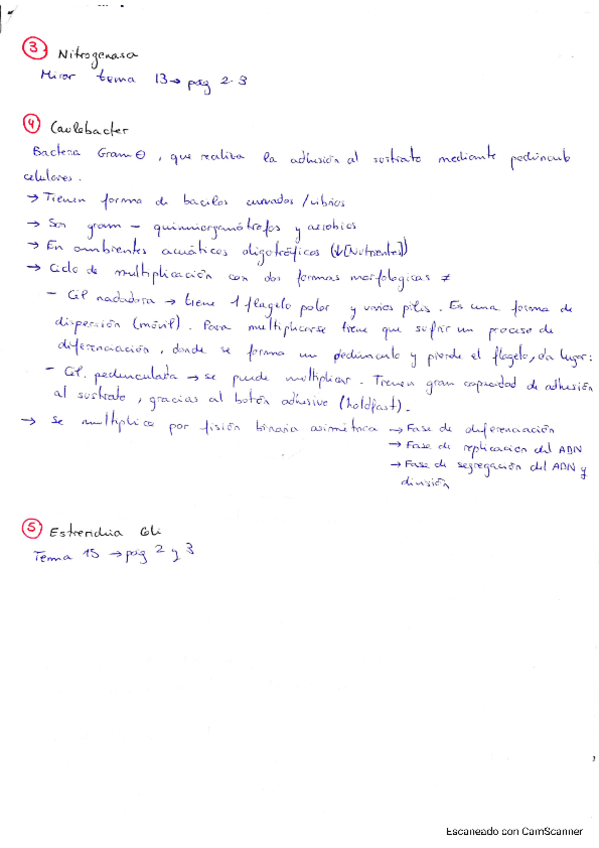 3 Nitrogenasa
Mirar tema 13 → pag 2-3
4 Caulobacter
Bacteria Gram ⊖, que realiza la adhesión al sustrato mediante pedúnculo
celulares.
→ Tienen forma de bacilos curvados / vibrios
→ Son gram - quimiorganótrofos y aerobios
→ En ambientes acuáticos oligotróficos (↓[Nutrientes])
→ Ciclo de multiplicación con dos formas morfológicas ≠
- Cél nadadora → tiene 1 flagelo polar y varios pilis. Es una forma de
dispersión (móvil). Para multiplicarse tiene que sufrir un proceso de
diferenciación, donde se forma un pedúnculo y pierde el flagelo, da lugar:
- Cél. pedunculada → se puede multiplicar. Tienen gran capacidad de adhesión
al sustrato, gracias al botón adhesivo (holdfast).
→ Se multiplica por fisión binaria asimétrica → Fase de diferenciación
→ Fase de replicación del ADN
→ Fase de segregación del ADN y
división
5 Estreridia Coli
Tema 15 → pag 2 y 3
Escaneado con CamScanner